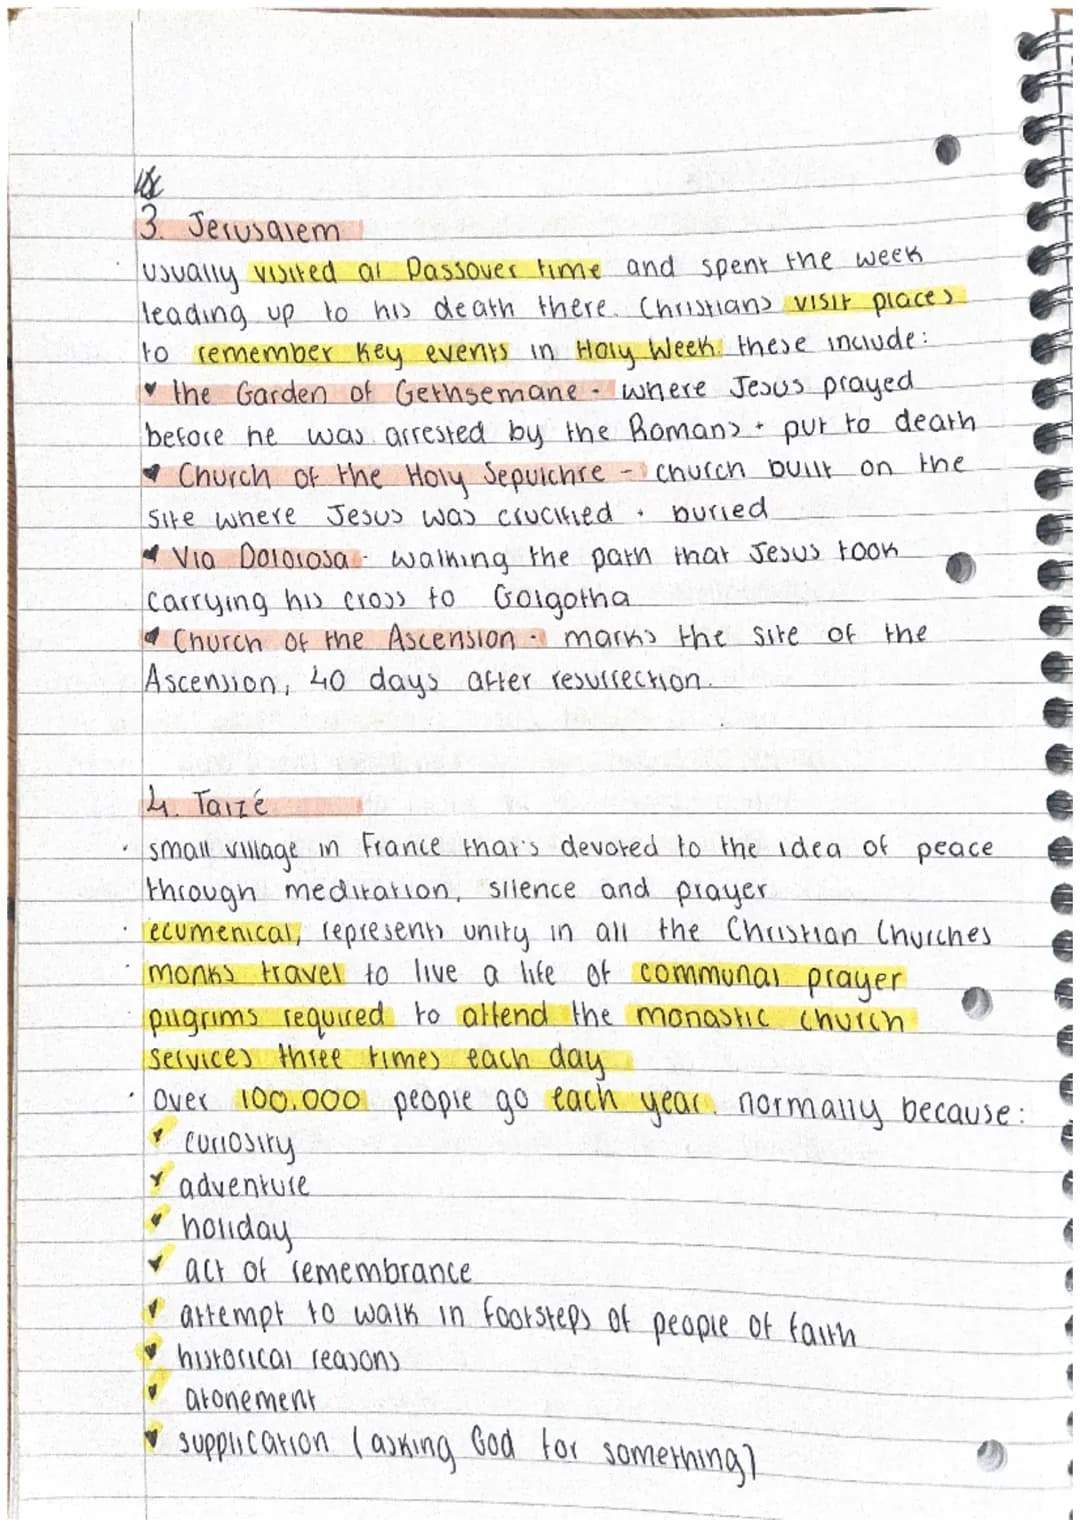 3. Jerusalem
· usually visited at Passover time and spent the week
leading up to his death there. Christians visit places
to remember key events in Holy Week. these include:
♥ the Garden of Gethsemane - where Jesus prayed
before he was arrested by the Romans + put to death
♥ Church of the Holy Sepulchre - church built on the
site where Jesus was crucified + buried
♥ Via Dolorosa - walking the path that Jesus took
carrying his cross to Golgotha
♥ Church of the Ascension - marks the site of the
Ascension, 40 days after resurrection.
4. Taizé
· small village in France that's devoted to the idea of peace
through meditation, silence and prayer
· ecumenical, represents unity in all the Christian Churches
· monks travel to live a life of communal prayer
pilgrims required to attend the monastic church
services three times each day
· Over 100,000 people go each year. normally because:
♥ curiosity
♥ adventure
♥ holiday
♥ act of remembrance
♥ attempt to walk in footsteps of people of faith
♥ historical reasons
♥ atonement
♥ supplication (asking God for something)